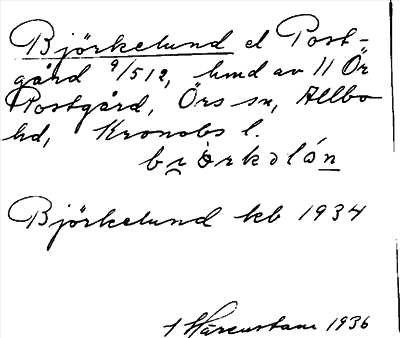 Björkelund el Post-
gård 9/512, hmd av 11 Ör
Postgård, Örs sn, Allbo
hd, Kronobs l.
Björkelund kb 1934
1936